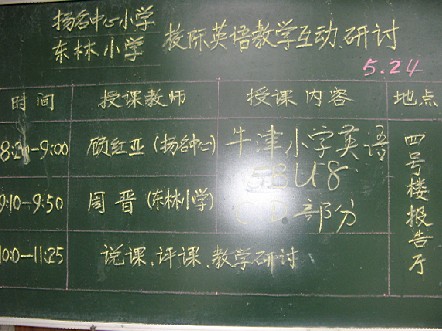 扬名中心小学
东林小学 校际英语教学互动研讨
5.24
时间 授课教师 授课内容 地点
8:20-9:00 顾红亚(扬名中心) 牛津小学英语
5BU8
9:10-9:50 周晋(东林小学) C.D.部分
10:10-11:25 说课、评课、教学研讨
四号楼报告厅